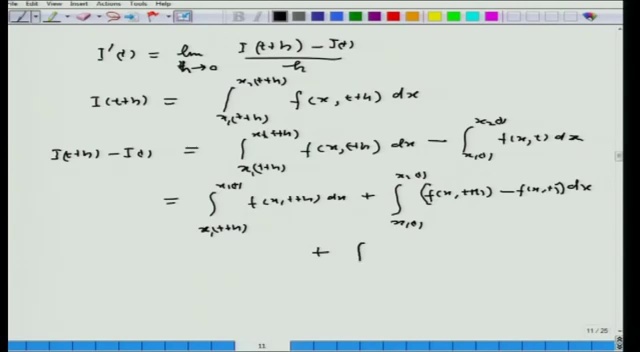 File Edit View Insert Actions Tools Help
I'(t) = lim_{h→0} \frac{I(t+h) - I(t)}{h}
I(t+h) = ∫_{x₁(t+h)}^{x₂(t+h)} f(x, t+h) dx
I(t+h) - I(t) = ∫_{x₁(t+h)}^{x₂(t+h)} f(x, t+h) dx - ∫_{x₁(t)}^{x₂(t)} f(x, t) dx
= ∫_{x₁(t+h)}^{x₁(t)} f(x, t+h) dx + ∫_{x₁(t)}^{x₂(t)} (f(x, t+h) - f(x, t)) dx
+ ∫
11 / 25
11